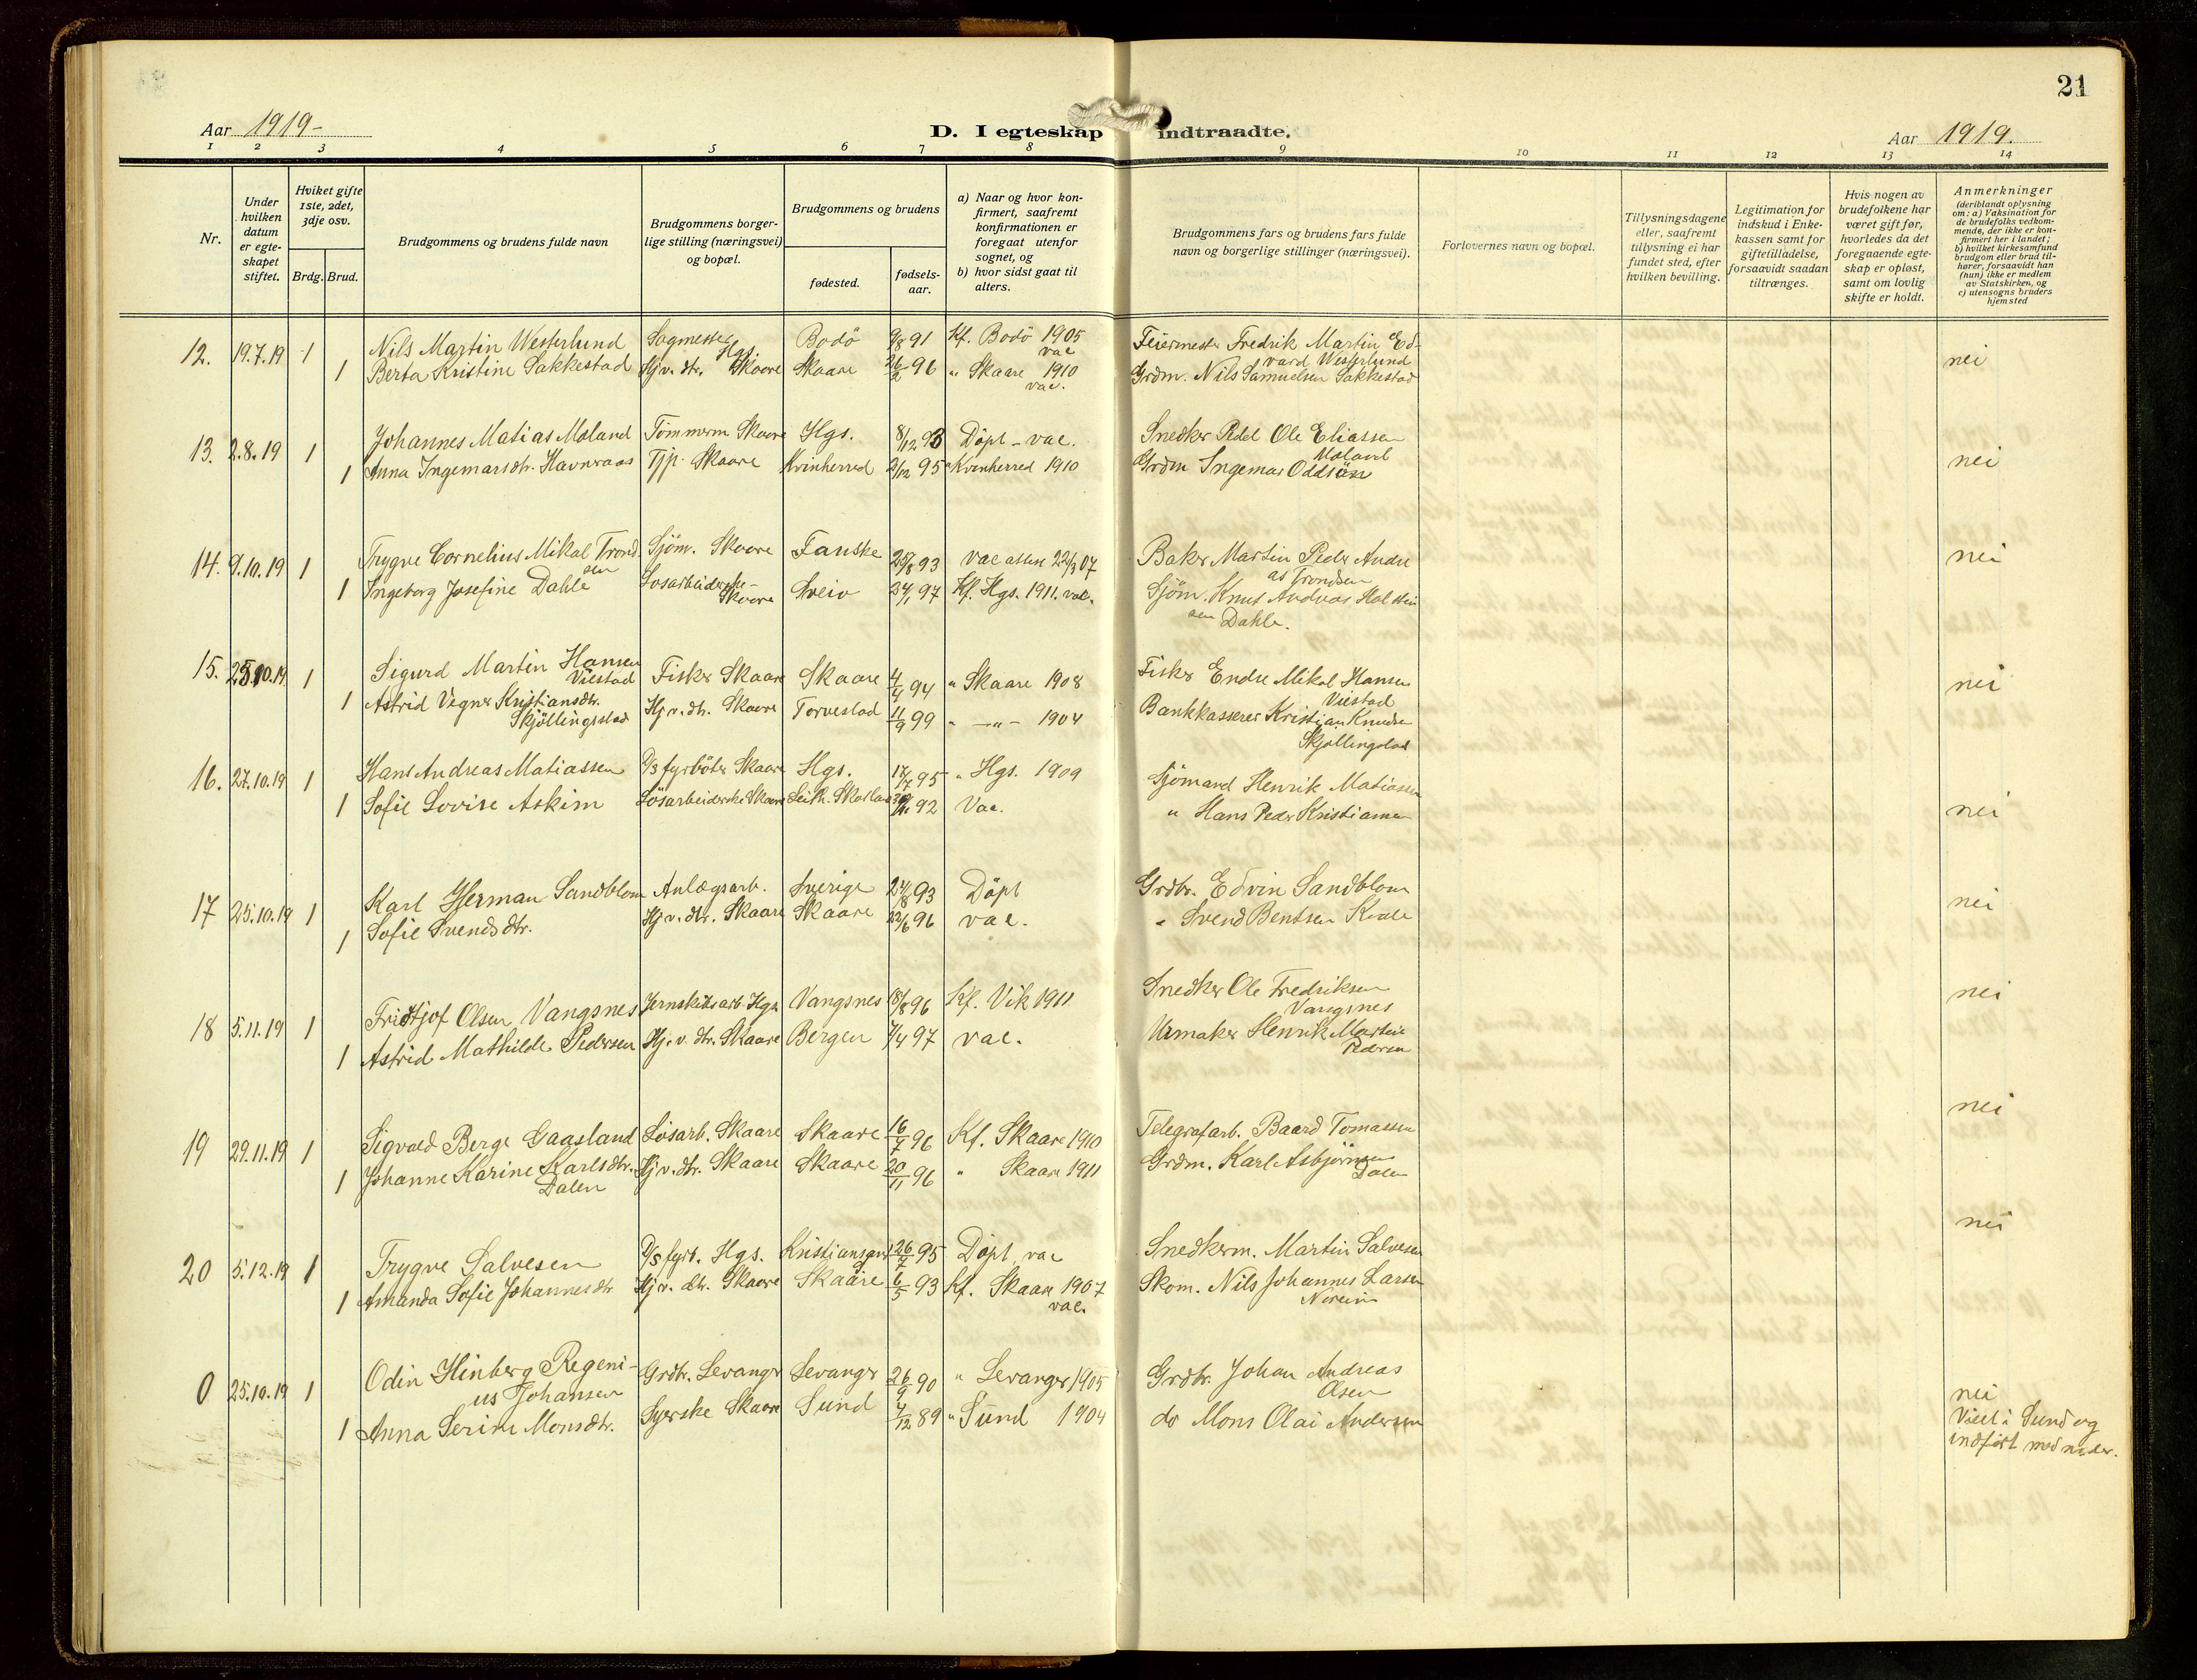 21
Aar 1919-
D. I egteskap indtraadte.
Aar 1919.
1 2 3 4 5 6 7 8 9 10 11 12 13 14
Nr.
Under hvilken datum er egte-skapet stiftet.
Hviket gifte 1ste, 2det, 3dje osv.
Brdg. Brud.
Brudgommens og brudens fulde navn
Brudgommens borger-lige stilling (næringsvei) og bopæl.
Brudgommens og brudens
fødested.
fødsels-aar.
a) Naar og hvor kon-firmert, saafremt konfirmationen er foregaat utenfor sognet, og
b) hvor sidst gaat til alters.
Brudgommens fars og brudens fars fulde navn og borgerlige stillinger (næringsvei).
Forlovernes navn og bopæl.
Tillysningsdagene eller, saafremt tillysning ei har fundet sted, efter hvilken bevilling.
Legitimation for indskud i Enke-kassen samt for giftetilladelse, forsaavidt saadan tiltrænges.
Hvis nogen av brudefolkene har været gift før, hvorledes da det foregaaende egte-skap er opløst, samt om lovlig skifte er holdt.
Anmerkninger (deriblandt oplysning om: a) Vaksination for de brudefolks vedkom-mende, der ikke er kon-firmert her i landet; b) hvilket kirkesamfund brudgom eller brud til-hører, forsaavidt han (hun) ikke er medlem av Statskirken, og c) utensogns bruders hjemsted
12. 19.7.19 1 Nils Martin Westerlund Sagmester Hgs. Bodö 9/8 91 Kf. Bodö 1905 vac Feiermester Fredrik Martin Ed-vard Westerlund nei
1 Berta Kristine Sakkestad Hjv. dtr. Skaare Skaare 26/2 96 " Skaare 1910 vac. Grdm. Nils Samuelsen Sakkestad
13. 2.8.19 1 Johannes Matias Moland Tömmerm Skaare Hgs. 8/12 93 Döpt - vac. Snedker Pedel Ole Eliassen Moland nei
1 Anna Ingemarsdtr. Havnraas Tjp. Skaare Kvinherred 2/12 95 " Kvinherred 1910 Grdm Ingemar Oddsöin
14. 9.10.19 1 Trygve Cornelius Mikal Trond-sen Sjöm. Skaare Fauske 25/8 93 vac attest 22/3 07 Baker Martin Peder Andre as Trondsen nei
1 Ingeborg Josefine Dahle Lösarbeiderske - Skaare Sveio 24/1 97 Kf. Hgs. 1911. vac. Sjöm. Knut Andreas Halstein sen Dahle.
15. 25.10.19 1 Sigurd Martin Hansen Viestad Fisker Skaare Skaare 4/4 94 " Skaare 1908 Fisker Endre Mikal Hansen Viestad nei
1 Astrid Vegner Kristiansdtr. Skjöllingstad Hj.v.dtr. Skaare Torvestad 11/9 99 " —"— 1904 Bankkasserer Kristian Knudsen Skjöllingstad
16. 27.10.19 1 Hans Andreas Matiassen D/s fyrböter Skaare Hgs. 17/7 95 " Hgs. 1909 Sjömand Henrik Matiassen nei
1 Sofie Lovise Askim Lösarbeiderske Skaare Leith. Skotland 92 Vac. " Hans Peder Kristiansen
17 25.10.19 1 Karl Herman Sandblom Anlægsarb. Sverige 24/8 93 Döpt Grdbr. Edvin Sandblom nei
1 Sofie Svendsdtr. Hj.v.dtr. Skaare Skaare 22/6 96 vac. " Svend Bentsen Kvale
18 5.11.19 1 Fridtjof Olsen Vangsnes Jernskibsarb Hgs. Vangsnes 18/8 96 Kf. Vik 1911 Snedker Ole Fredriksen Vangsnes nei
1 Astrid Mathilde Pedersen Hj.v.dtr. Skaare Bergen 7/4 97 vac. Urmaker Henrik Martin Pedersen
19 29.11.19 1 Sigvald Berge Gaasland Lösarb. Skaare Skaare 16/7 96 Kf. Skaare 1910 Telegrafarb. Baard Tomassen nei
1 Johanne Karine Karlsdtr. Dalen Hj.v.dtr. Skaare Skaare 20/11 96 " Skaare 1911 Grdm. Karl Asbjörnsen Dalen
20 5.12.19 1 Trygve Salvesen D/s fyrb. Hgs. Kristiansand 26/7 95 Döpt, vac Snedkerm. Martin Salvesen nei
1 Amanda Sofie Johannesdtr Hj.v.dtr. Skaare Skaare 6/5 93 Kf. Skaare 1907 vac. Skom. Nils Johannes Larsen Noreim
0 25.10.19 1 Odin Hinberg Regeni-us Johansen Grdbr. Levanger Levanger 26/9 90 " Levanger 1905 Grdbr. Johan Andreas Olsen nei
1 Anna Serine Monsdtr. Syerske Skaare Sund 4/12 89 " Sund 1904 do Mons Olai Andersen Viet i Sund og indfört med neder.